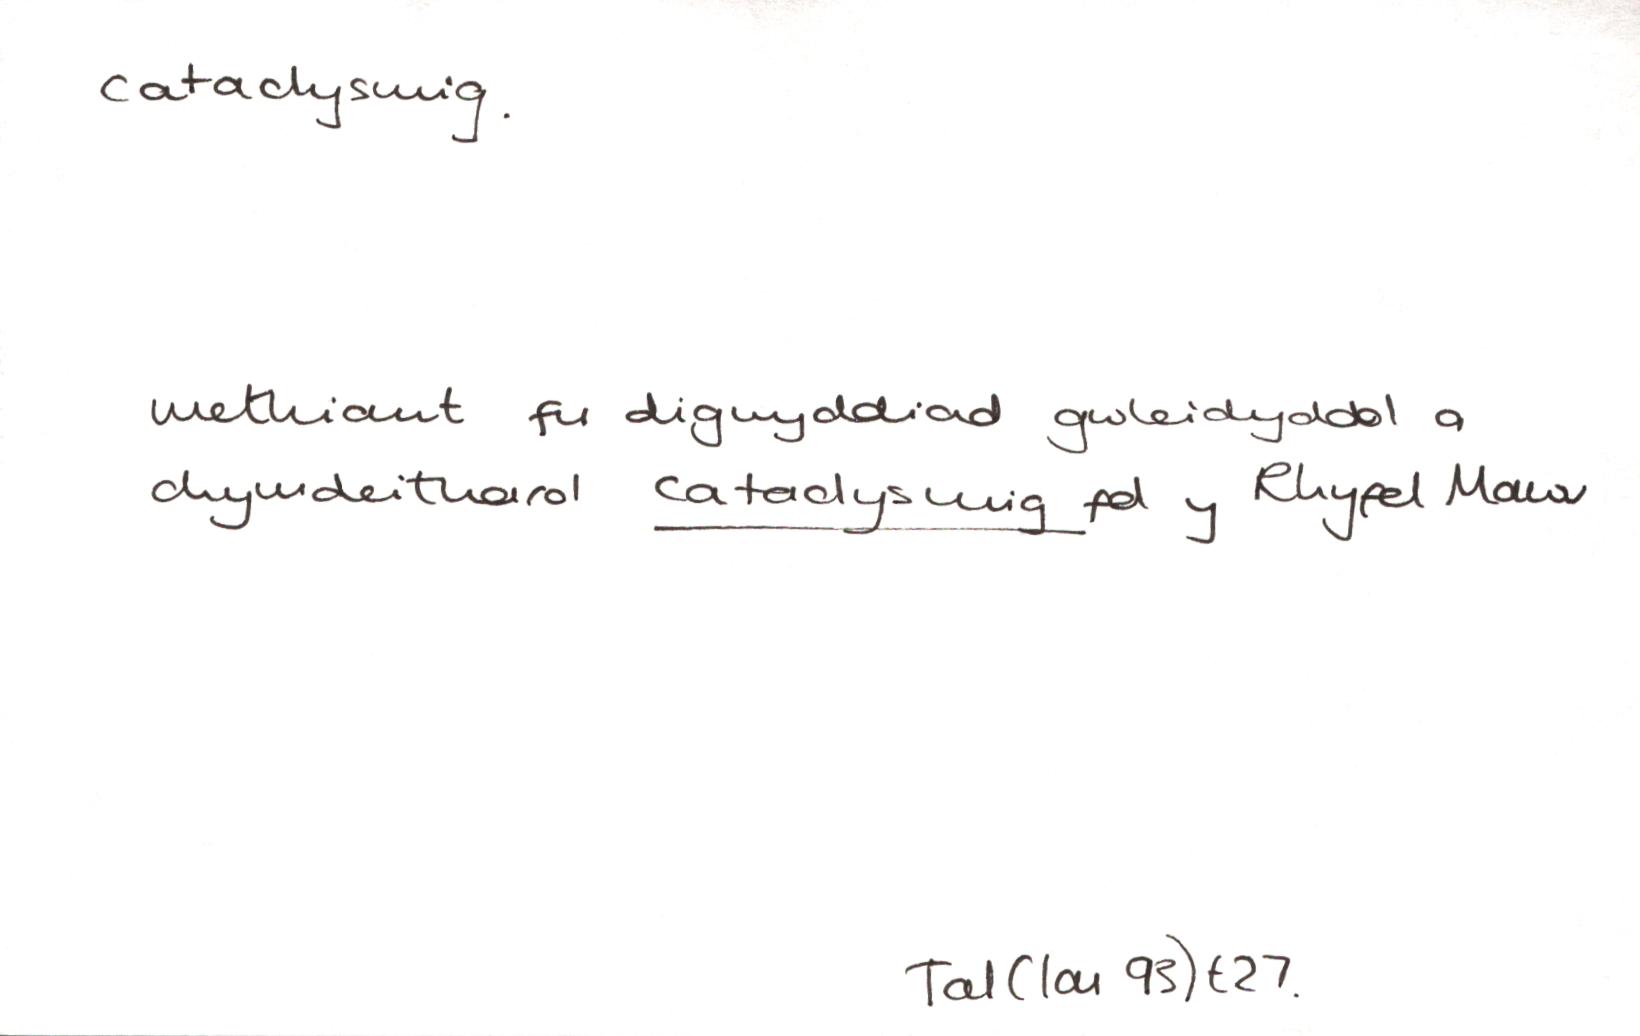 cataclysmig.
methiant fu digwyddiad gwleidyddol a
chymdeithasol cataclysmig fel y Rhyfel Mawr
Tal (Ion 93) t27.